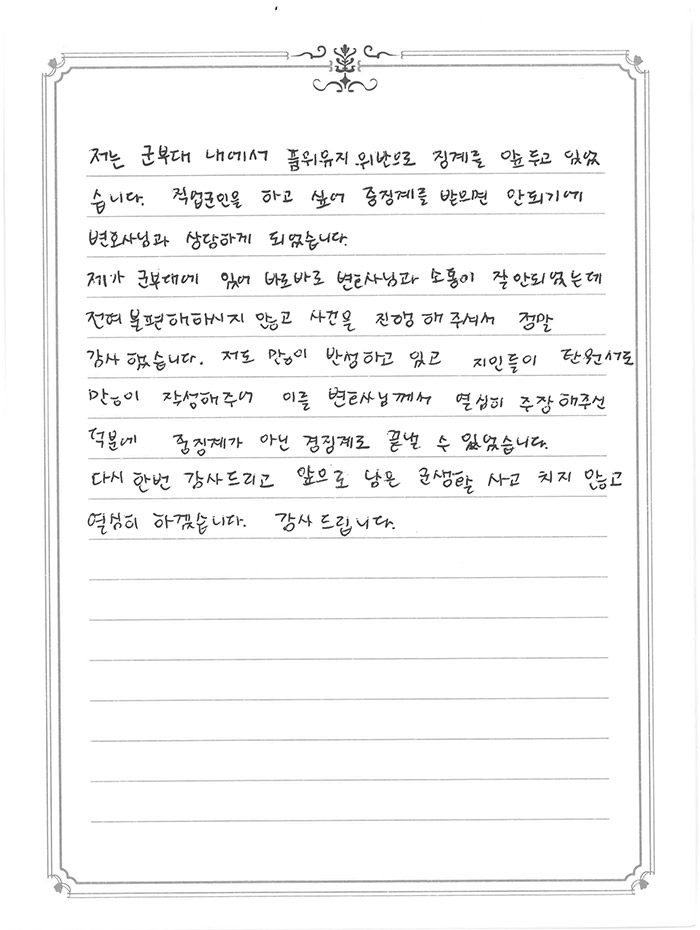 저는 군부대 내에서 품위유지 위반으로 징계를 앞두고 있었
습니다. 직업군인을 하고 싶어 중징계를 받으면 안되기에
변호사님과 상담하게 되었습니다.
제가 군부대에 있어 바로바로 변호사님과 소통이 잘 안되었는데
전혀 불편해하시지 않고 사건을 진행 해 주셔서 정말
감사 했습니다. 저도 많이 반성하고 있고 지인들이 탄원서도
많이 작성해주어 이를 변호사님께서 열심히 주장해주신
덕분에 중징계가 아닌 경징계로 끝낼 수 있었습니다.
다시 한번 감사드리고 앞으로 남은 군생활 사고 치지 않고
열심히 하겠습니다. 감사 드립니다.